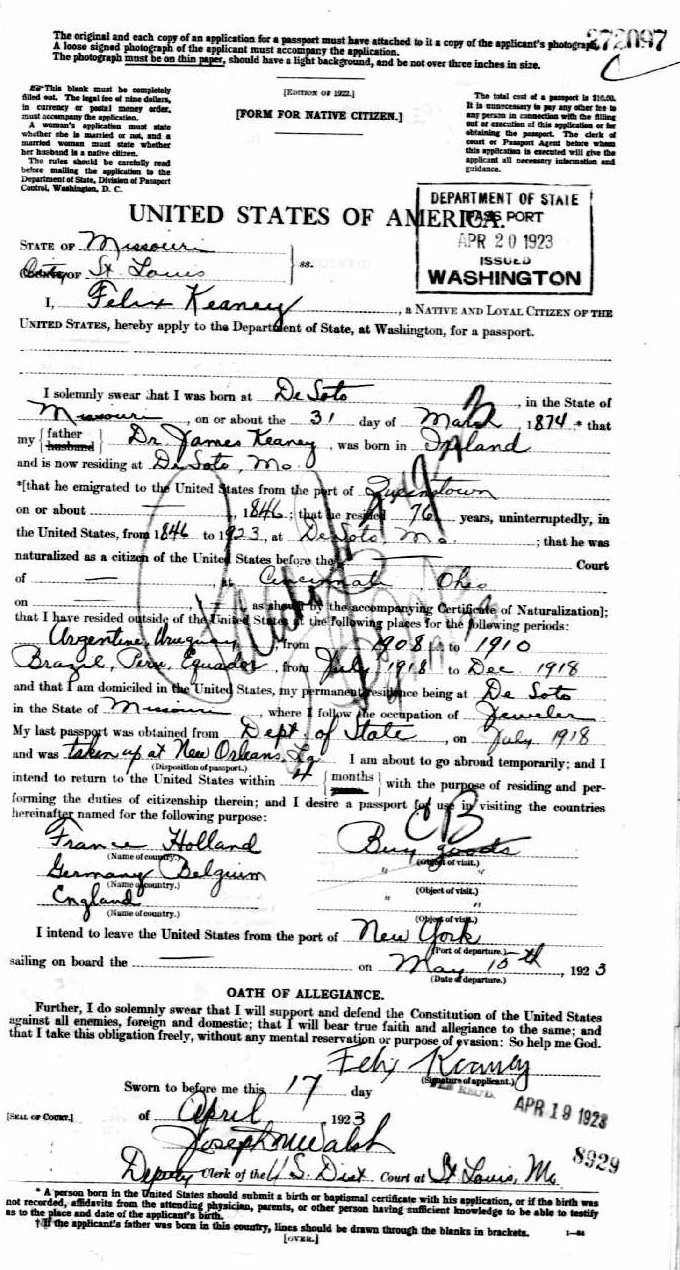 The original and each copy of an application for a passport must have attached to it a copy of the applicant's photograph.
A loose signed photograph of the applicant must accompany the application.
The photograph must be on thin paper, should have a light background, and be not over three inches in size.
272097
This blank must be completely
filled out. The legal fee of nine dollars,
in currency or postal money order,
must accompany the application.
A woman's application must state
whether she is married or not, and a
married woman must state whether
her husband is a native citizen.
The rules should be carefully read
before mailing the application to the
Department of State, Division of Passport
Control, Washington, D. C.
[EDITION OF 1922.]
[FORM FOR NATIVE CITIZEN.]
The total cost of a passport is $10.00.
It is unnecessary to pay any other fee to
any person in connection with the filling
out or execution of this application or for
obtaining the passport. The clerk of
court or Passport Agent before whom
this application is executed will give the
applicant all necessary information and
guidance.
UNITED STATES OF AMERICA.
DEPARTMENT OF STATE
PASSPORT
APR 20 1923
ISSUED
WASHINGTON
STATE OF Missouri
OF St. Louis ss.
I, Felix Keaney, a NATIVE AND LOYAL CITIZEN OF THE
UNITED STATES, hereby apply to the Department of State, at Washington, for a passport.
I solemnly swear that I was born at De Soto, in the State of
Missouri, on or about the 31 day of March, 1874 * that
my {father husband} Dr. James Keaney, was born in Ireland
and is now residing at De Soto, Mo.
*[that he emigrated to the United States from the port of Queenstown
on or about —, 1846; that he resided 76 years, uninterruptedly, in
the United States, from 1846 to 1923, at De Soto Mo.; that he was
naturalized as a citizen of the United States before the — Court
of —, at Cincinnati, Ohio
on —, as shown by the accompanying Certificate of Naturalization];
that I have resided outside of the United States at the following places for the following periods:
Argentine, Uruguay, from 1908 to 1910
Brazil, Peru, Equador, from July 1918 to Dec 1918
and that I am domiciled in the United States, my permanent residence being at De Soto
in the State of Missouri, where I follow the occupation of Jeweler
My last passport was obtained from Dept. of State, on July 1918
and was taken up at New Orleans, La I am about to go abroad temporarily; and I
(Disposition of passport.)
intend to return to the United States within 4 {months with the purpose of residing and per-
forming the duties of citizenship therein; and I desire a passport for use in visiting the countries
hereinafter named for the following purpose:
CB
France Holland Buy goods
(Name of country.) (Object of visit.)
Germany Belgium " "
(Name of country.) (Object of visit.)
England " "
(Name of country.) (Object of visit.)
I intend to leave the United States from the port of New York
(Port of departure.)
sailing on board the — on May 15th, 1923
(Date of departure.)
OATH OF ALLEGIANCE.
Further, I do solemnly swear that I will support and defend the Constitution of the United States
against all enemies, foreign and domestic; that I will bear true faith and allegiance to the same; and
that I take this obligation freely, without any mental reservation or purpose of evasion: So help me God.
Felix Keaney
(Signature of applicant.)
Sworn to before me this 17 day
APR 19 1923
[SEAL OF COURT.] of April 1923
Joseph M Walsh
8929
Deputy Clerk of the U S. Dist Court at St. Louis, Mo.
* A person born in the United States should submit a birth or baptismal certificate with his application, or if the birth was
not recorded, affidavits from the attending physician, parents, or other person having sufficient knowledge to be able to testify
as to the place and date of the applicant's birth.
† If the applicant's father was born in this country, lines should be drawn through the blanks in brackets.
[OVER.]